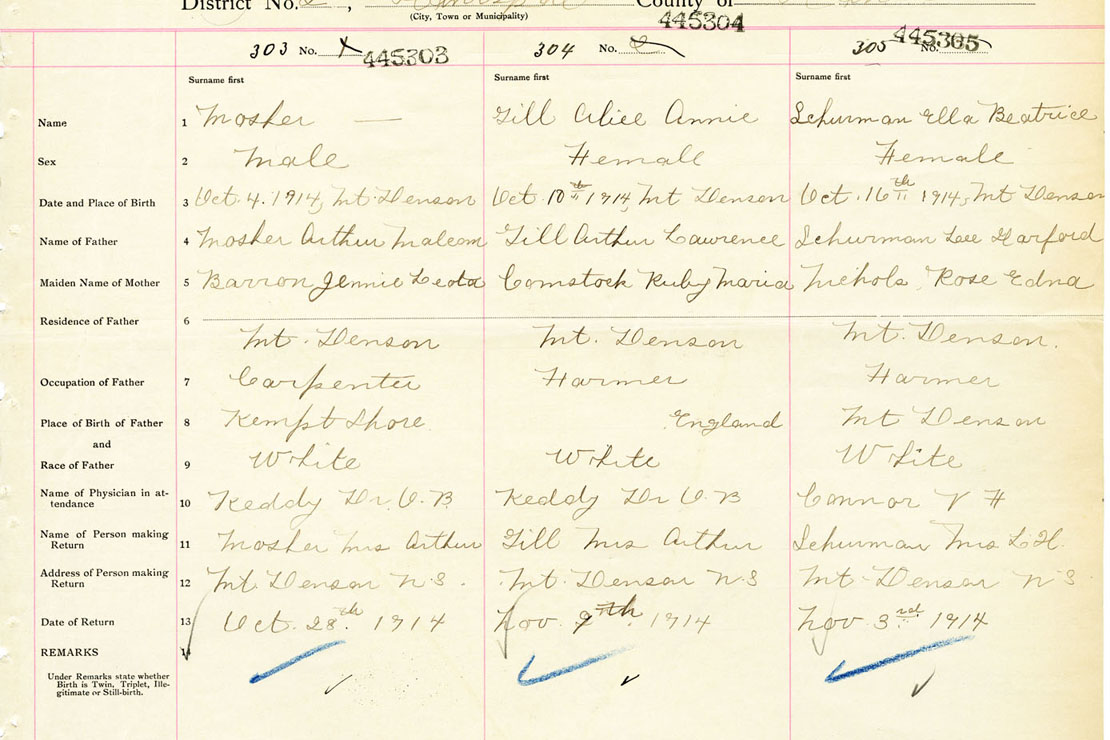 District No.
County of
(City, Town or Municipality)
445304
303 No. 445303 304 No. 2 305 No. 445305
Surname first Surname first Surname first
Name 1 Mosher — Gill Alice Annie Schurman Ella Beatrice
Sex 2 Male Female Female
Date and Place of Birth 3 Oct. 4. 1914, Mt. Denson Oct. 10th 1914, Mt Denson Oct. 16th 1914, Mt Denson
Name of Father 4 Mosher Arthur Malcom Gill Arthur Lawrence Schurman Lee Garford
Maiden Name of Mother 5 Barron Jennie Leota Comstock Ruby Maria Nichols Rose Edna
Residence of Father 6
Mt. Denson Mt. Denson Mt. Denson.
Occupation of Father 7 Carpenter Farmer Farmer
Place of Birth of Father 8 Kempt Shore England Mt Denson
and
Race of Father 9 White White White
Name of Physician in at-
tendance 10 Keddy Dr. O. B. Keddy Dr. O. B Connor V F
Name of Person making
Return 11 Mosher Mrs Arthur Gill Mrs Arthur Schurman Mrs L. G.
Address of Person making
Return 12 Mt. Denson N.S. Mt. Denson N S Mt. Denson N S
Date of Return 13 Oct. 28th. 1914 Nov. 9th 1914 Nov. 3rd. 1914
REMARKS 14
Under Remarks state whether
Birth is Twin, Triplet, Ille-
gitimate or Still-birth.